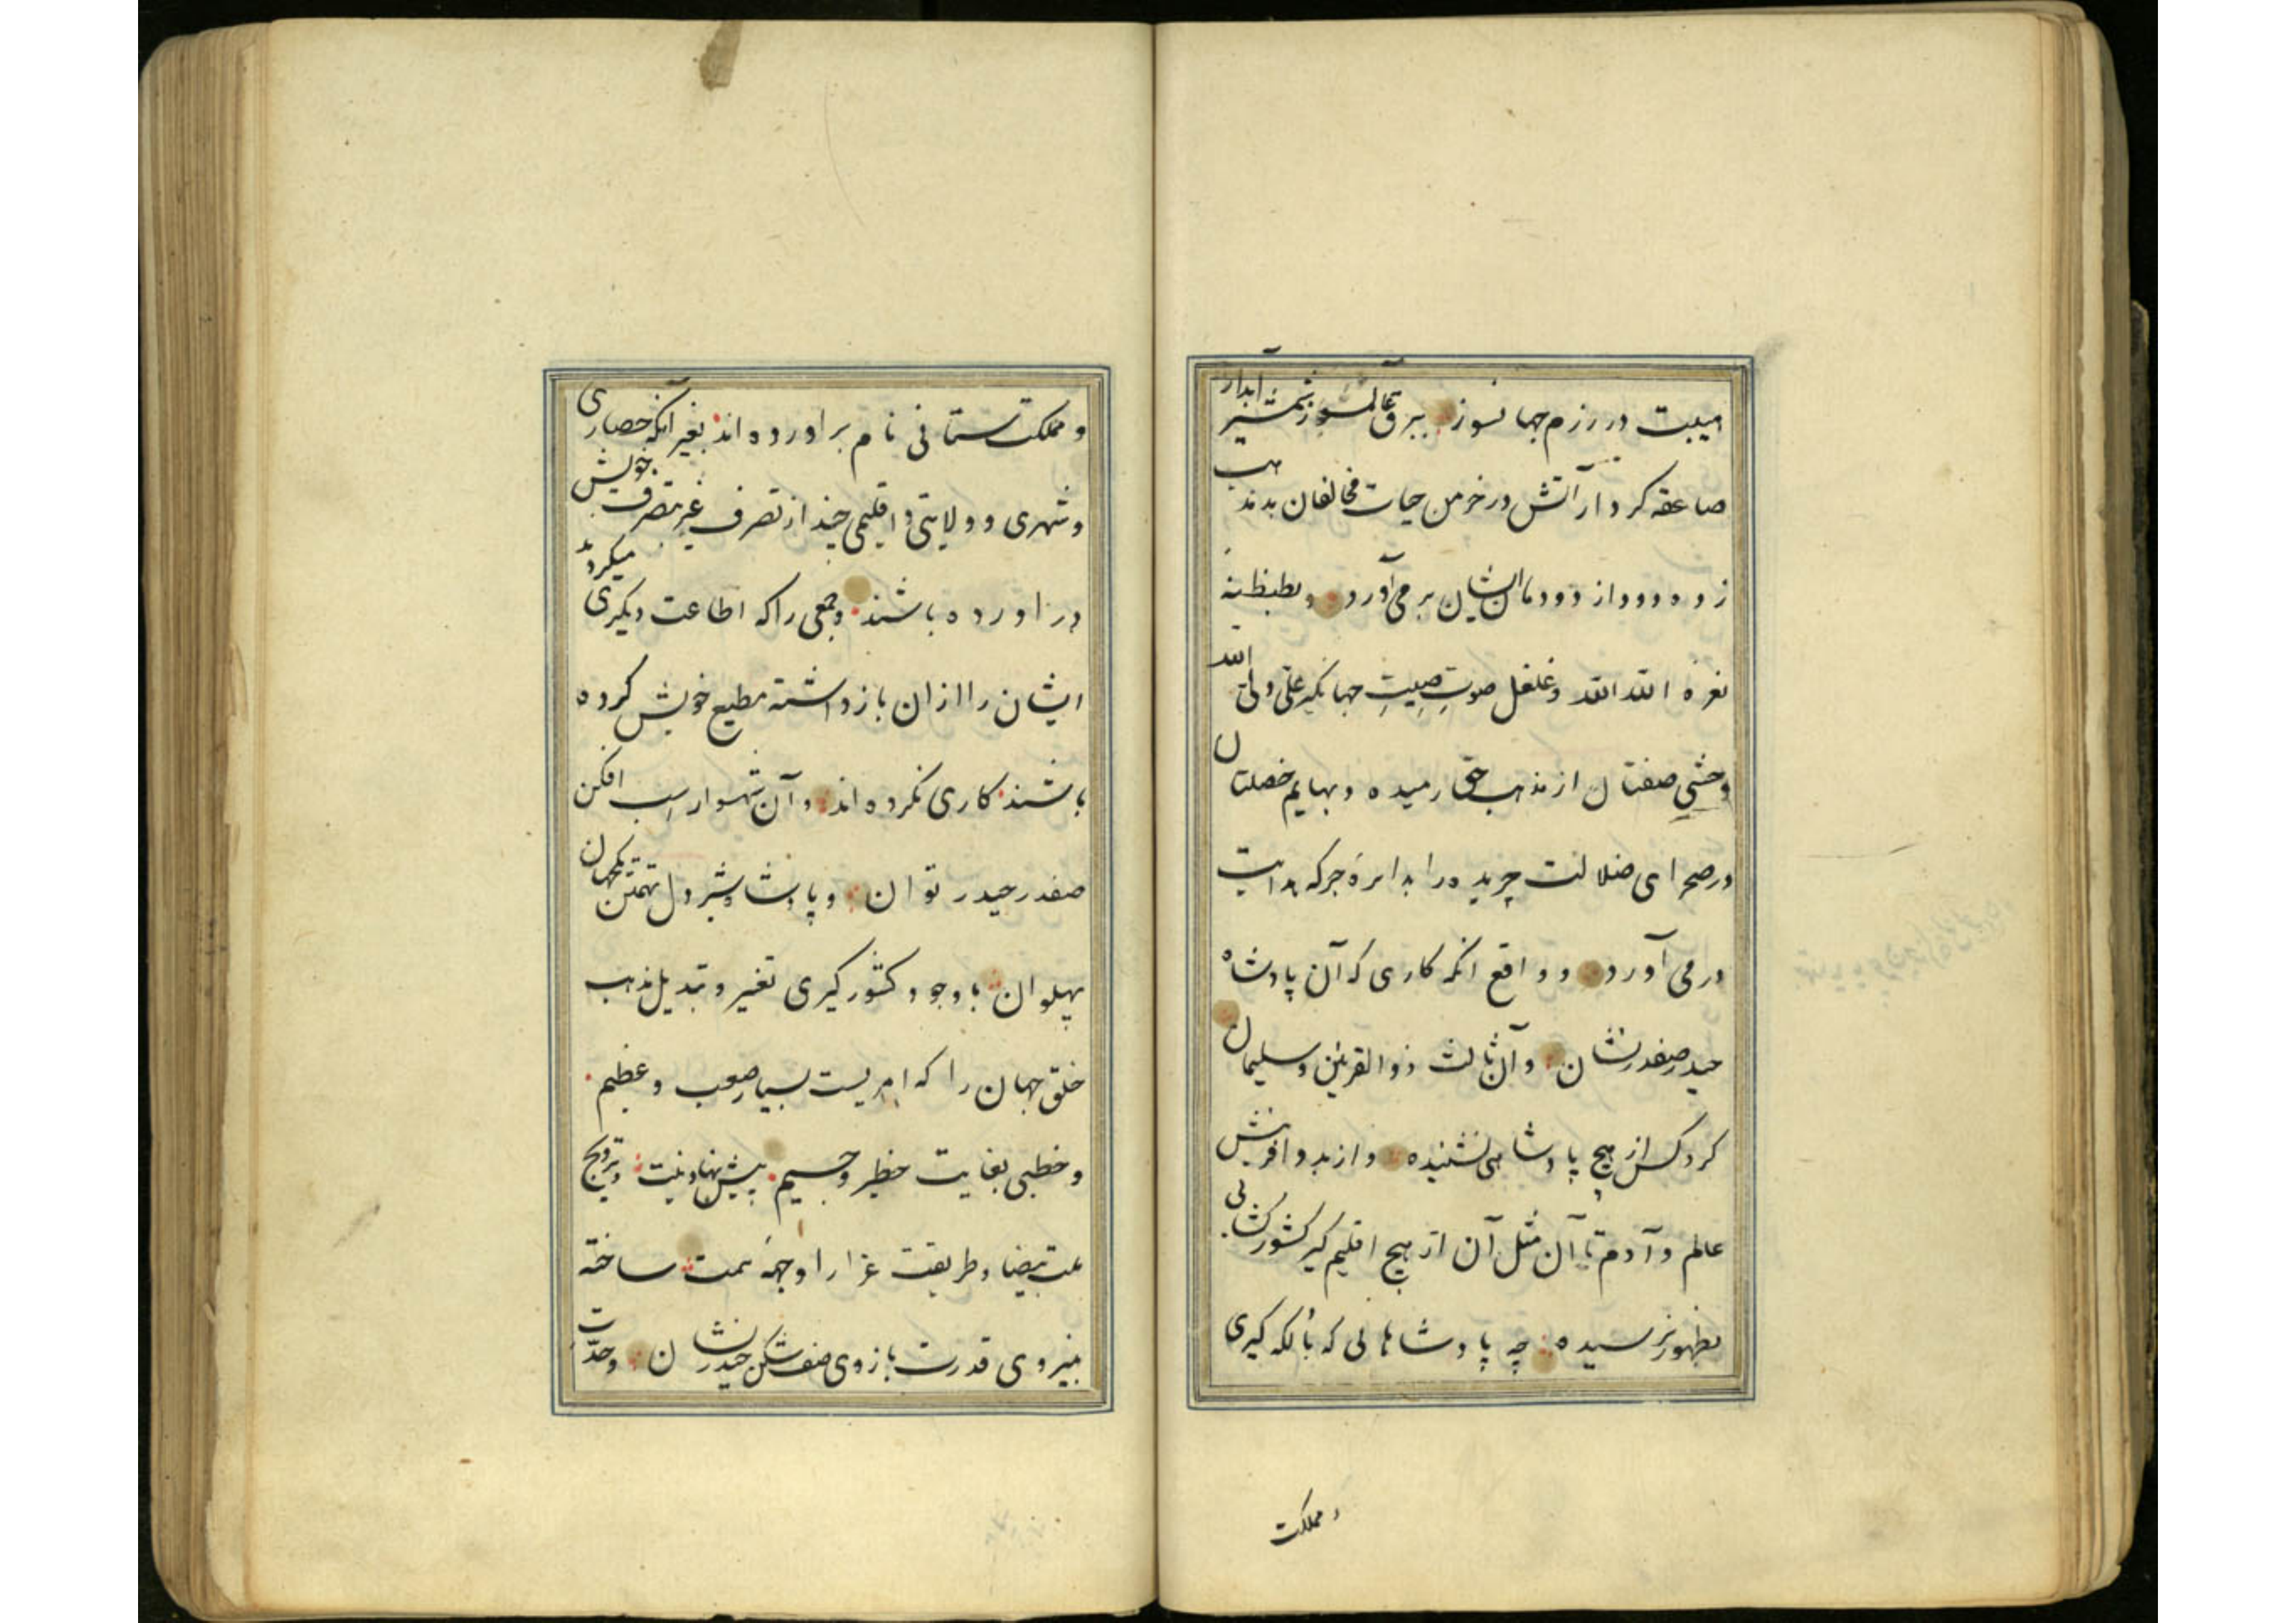 هیبت در رزم جهانسوز ببرق عالمسوز شمشیر آبدار
صاعقه کردار آتش در خرمن حیات مخالفان بدمذهب
زده دود از دودمان ایشان بر می آورد و بطنطنهٔ
نعرهٔ الله الله و غلغل صوتِ صیتِ جهانگیر علی ولی الله
وحشی صفتان از مذهب حق رمیده و بهایم خصلتان
در صحرای ضلالت چریده را بدایرهٔ جرکه هدایت
در می آورد و در واقع آنکه کاری که آن پادشاه
حیدر صفدر نشان و آن ثالث ذوالقرنین و سلیمان
کرد کس از هیچ پادشاهی نشنیده و از بدو آفرینش
عالم و آدم تا آن مثل آن از هیچ اقلیم گیر کشورکشائی
بظهور نرسیده چه پادشاهانی که بالکه گیری
و مملکت
و مملکت ستانی نام برآورده اند بغیر آنکه حصاری
و شهری و ولایتی و اقلیمی چند از تصرف غیر بتصرف خویش
در اورده باشند و جمعی را که اطاعت دیگری میکردند
ایشان را از ان بازداشته مطیع خویش کرده
باشند کاری نکرده اند و آن شهسوار اسب افکن
صفدر حیدر توان و پادشاه شیردل تهمتن
پهلوان با وجود کشورگیری تغیر و تبدیل مذهب
خلق جهان را که امریست بسیار صعب و عظیم
و خطبی بغایت خطیر و جسیم پیش نهاد نیت و ترویج
ملت بیضا و طریقت غرا را وجههٔ همت ساخته
بنیروی قدرت بازوی صف شکن حیدر نشان و حدّت